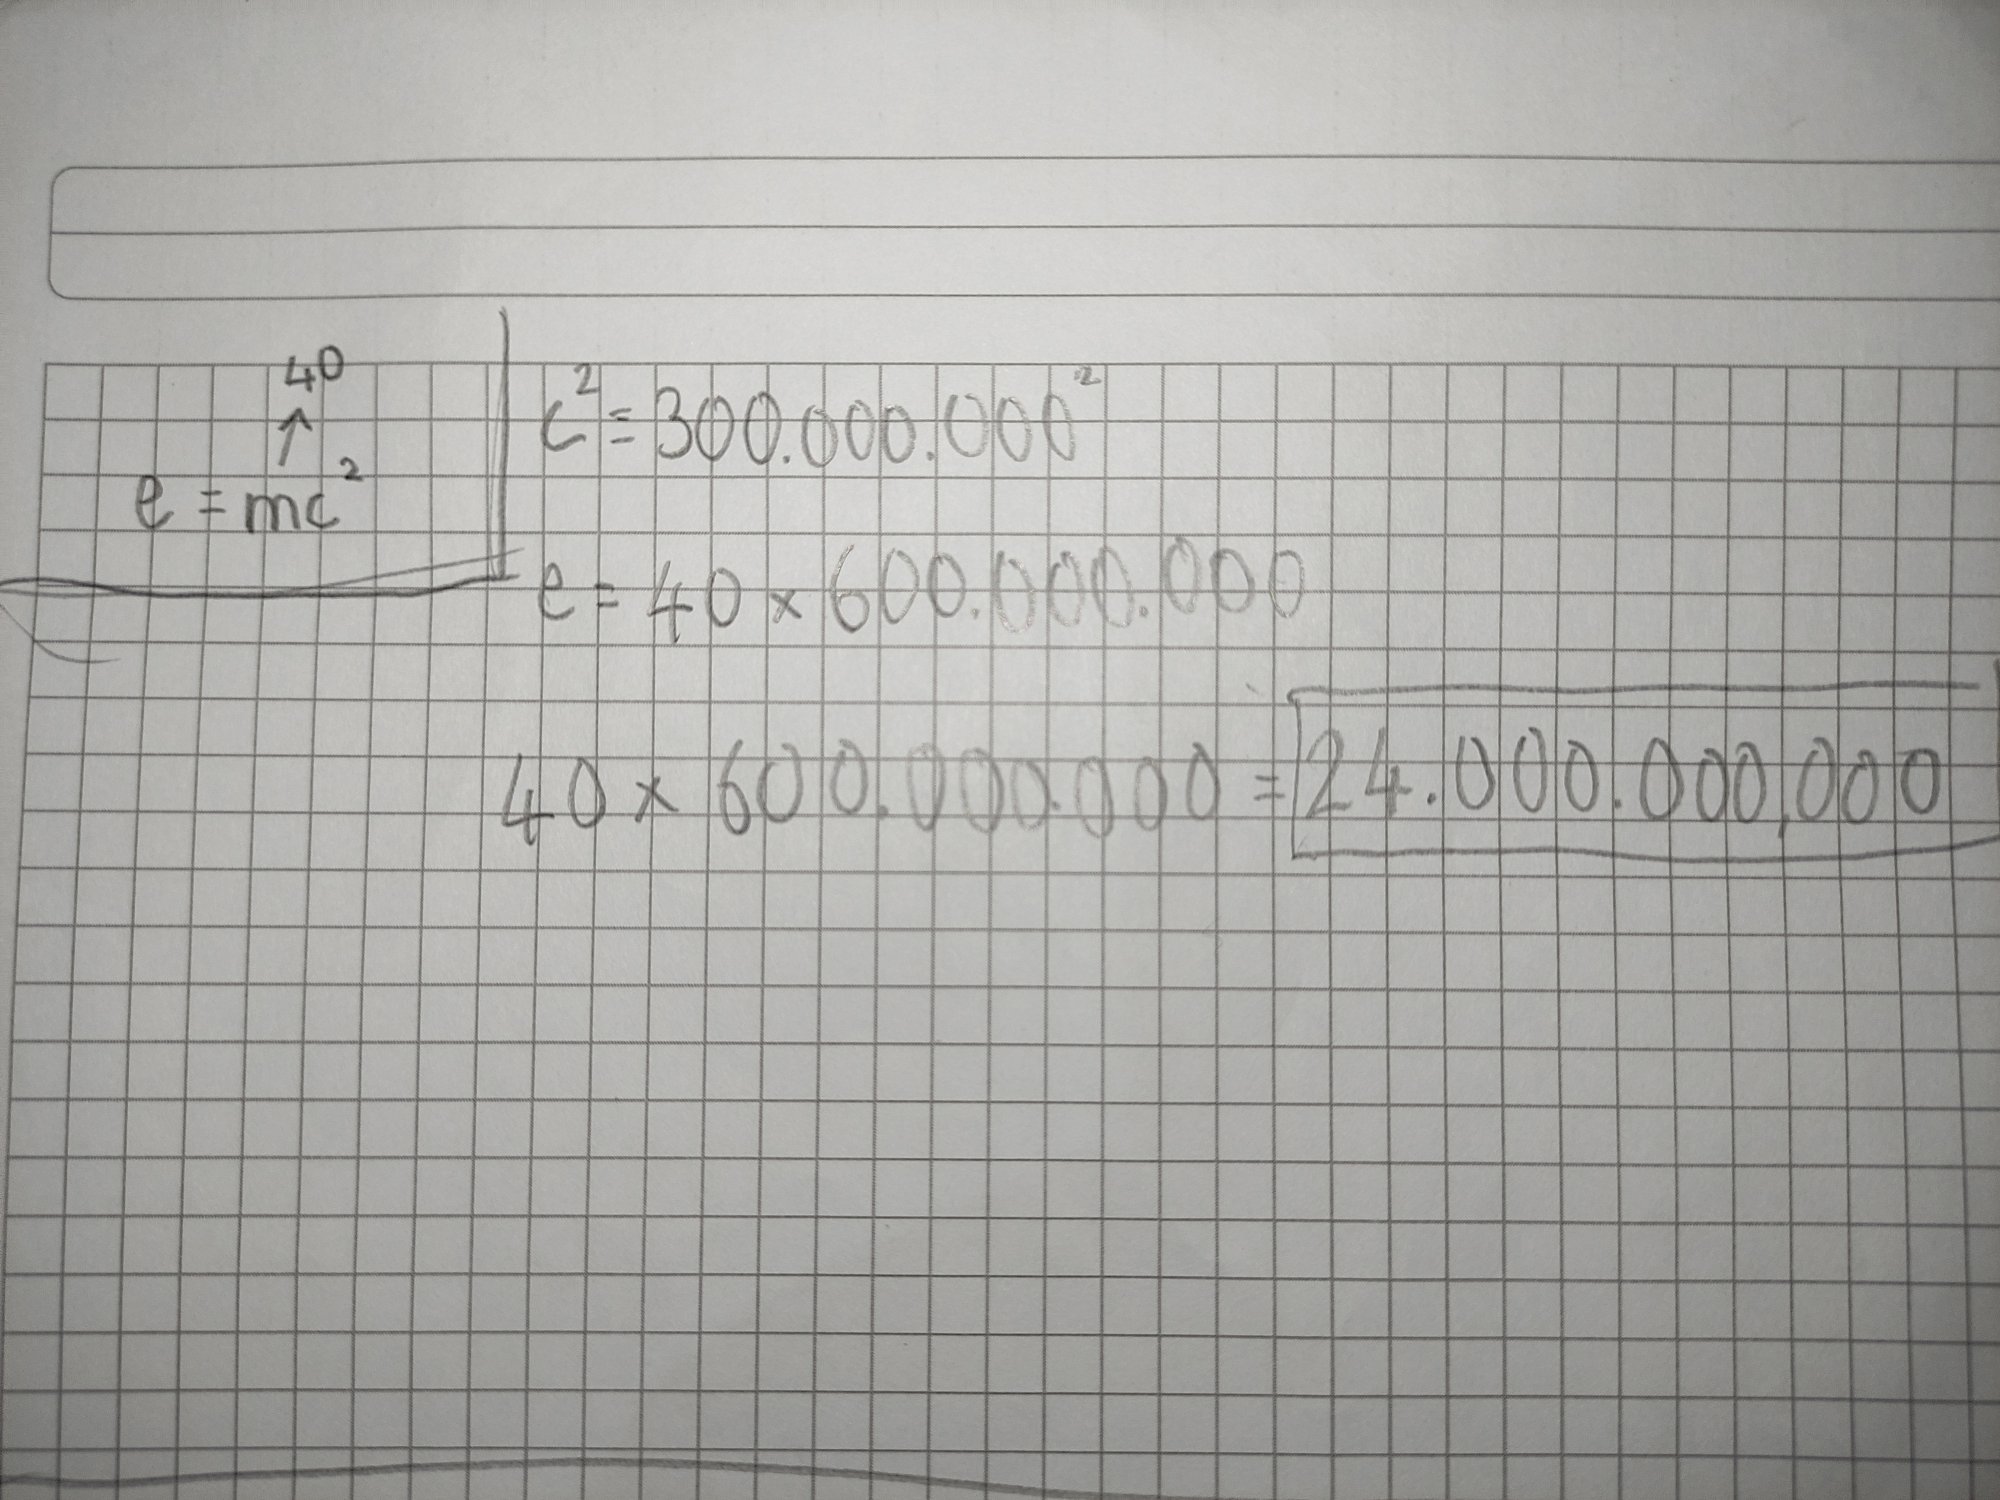 40
↑
e = mc²
c² = 300.000.000²
e = 40 x 600.000.000
40 x 600.000.000 = 24.000.000,000